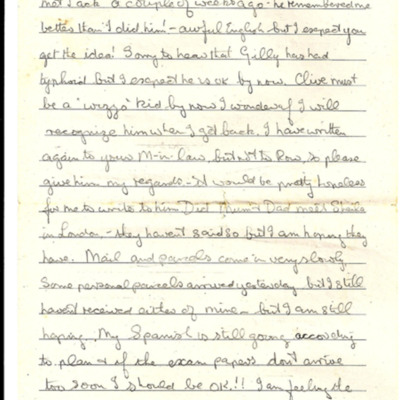 met Jack a couple of weeks ago - he remembered me
better than I did him! - awful English but I expect you
get the idea! Sorry to hear that Gilly has had
typhoid but I expect he is ok by now. Clive must
be a "wizzo" kid by now I wonder if I will
recognize him when I get back. I have written
again to your M-in-law, but not to Row, so please
give him my regards - it would be pretty
for me to write to him Did Mum & Dad meet
in London, - they haven't said so but I am hoping they
have. Mail and parcels come in very slowly
Some personal parcels arrived yesterday but I still
haven't received either of mine - but I am still
hoping. My Spanish is still going according
to plan & if the exam papers don't arrive
too soon I should be OK!! I am feeling